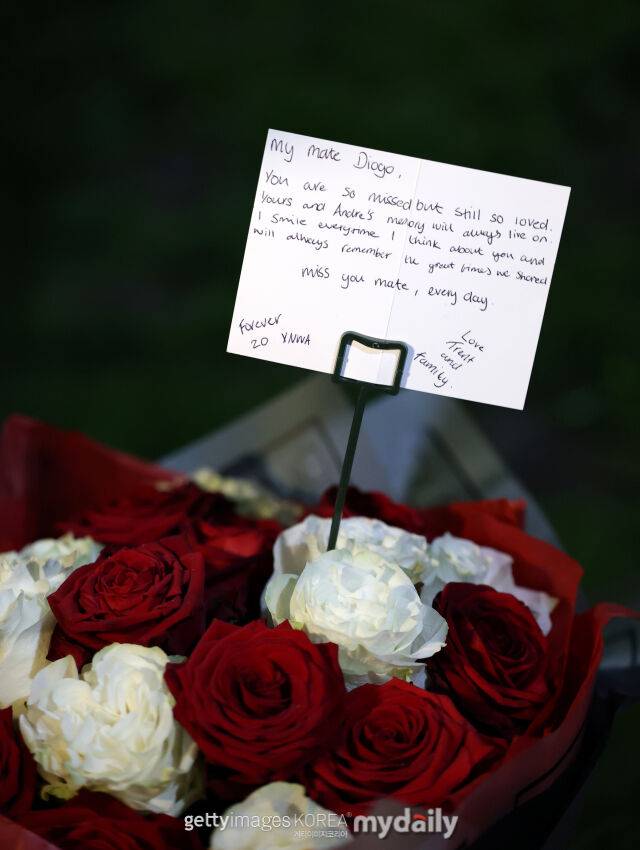 My mate Diogo,
You are so missed but still so loved.
Yours and Andre's memory will always live on.
I smile everytime I think about you and
will always remember the great times we shared
miss you mate, every day.
Forever
20 YNWA
Love
Trent
and
family.
gettyimages KOREA
게티이미지코리아
mydaily